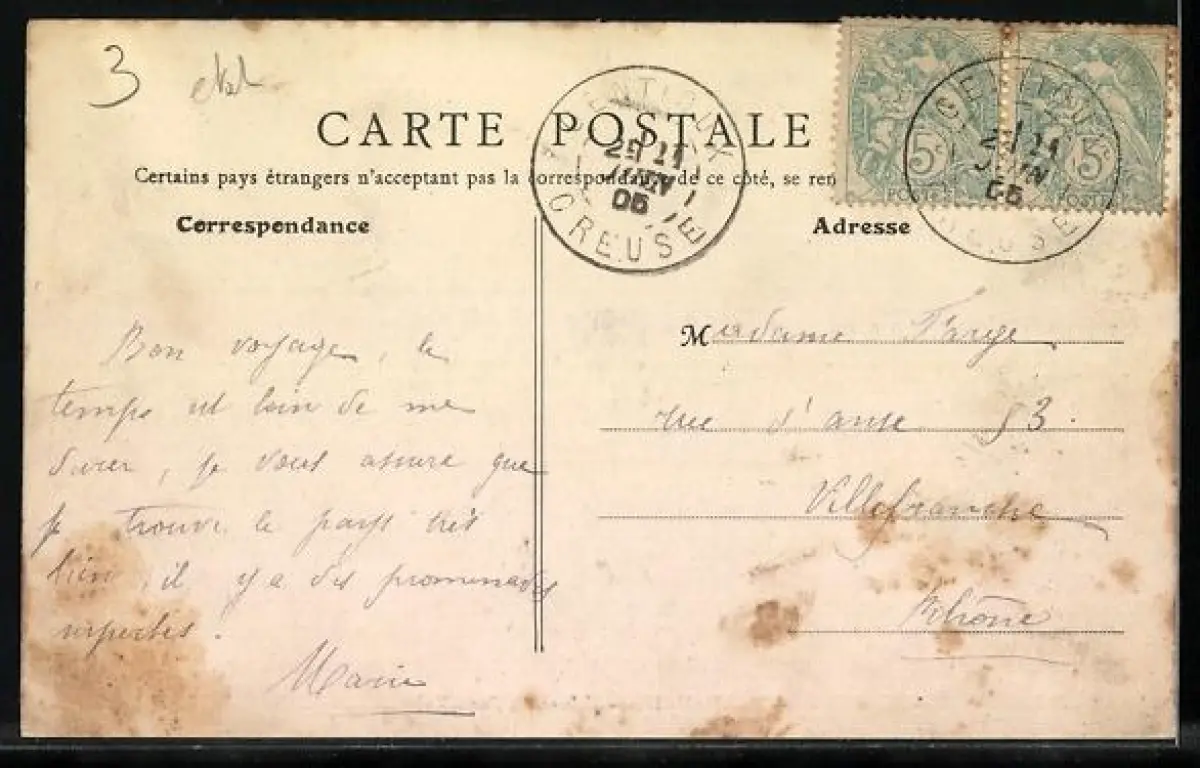 3
CARTE POSTALE
Certains pays étrangers n'acceptant pas la correspondance de ce côté, se ren
Correspondance
Adresse
GENTIOUX
21
JUIN
05
CREUSE
5c
POSTES
GENTIOUX
21
JUIN
05
CREUSE
5c
POSTES
Bon voyage, le
temps est loin de me
durer, je vous assure que
je trouve le pays très
bien, il y a des promenades
superbes.
Marie
Madame Farge
rue d'anse 53.
Villefranche
Rhône